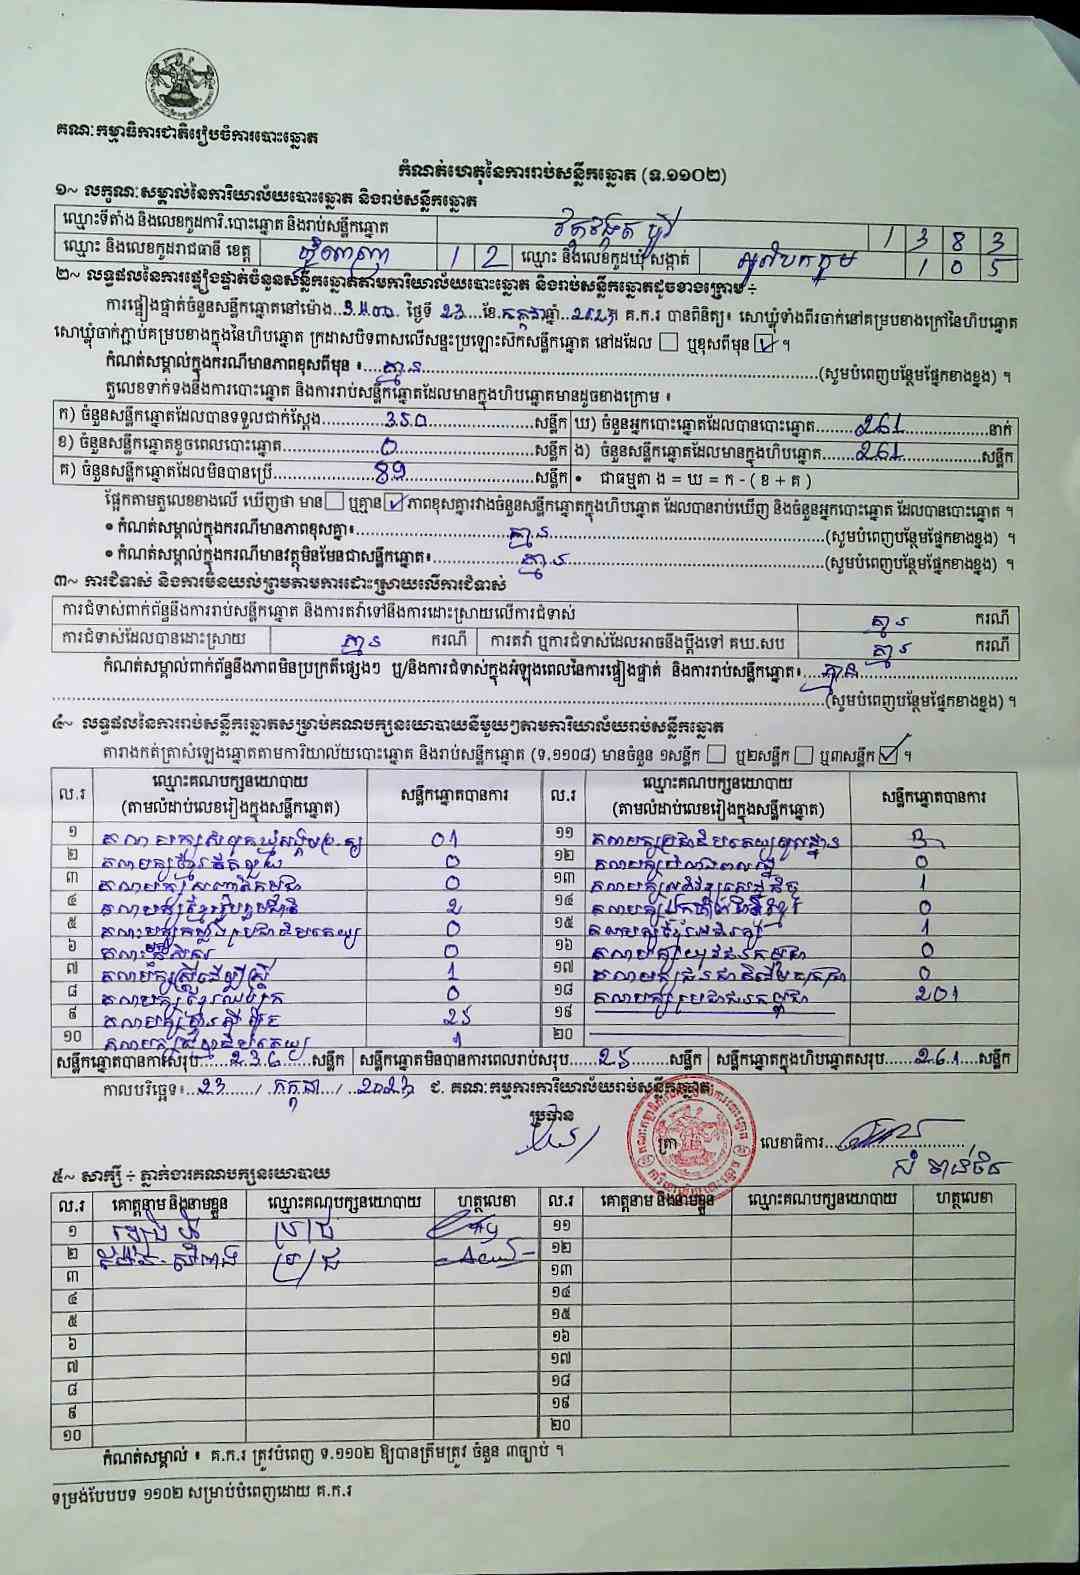 គណៈកម្មាធិការជាតិរៀបចំការបោះឆ្នោត
កំណត់ហេតុនៃការរាប់សន្លឹកឆ្នោត (ទ.១១០២)
១~ លក្ខណៈសម្គាល់នៃការិយាល័យបោះឆ្នោត និងរាប់សន្លឹកឆ្នោត
ឈ្មោះទីតាំង និងលេខកូដការិ.បោះឆ្នោត និងរាប់សន្លឹកឆ្នោត 1 3 8 3
ឈ្មោះ និងលេខកូដរាជធានី ខេត្ត ភ្នំពេញ 1 2 ឈ្មោះ និងលេខកូដឃុំ សង្កាត់ 1 0 5
២~ លទ្ធផលនៃការផ្ទៀងផ្ទាត់ចំនួនសន្លឹកឆ្នោតតាមការិយាល័យបោះឆ្នោត និងរាប់សន្លឹកឆ្នោតដូចខាងក្រោម ÷
ការផ្ទៀងផ្ទាត់ចំនួនសន្លឹកឆ្នោតនៅម៉ោង ថ្ងៃទី 23 ខែ កក្កដា ឆ្នាំ 2023 គ.ក.រ បានពិនិត្យ៖ សោឃ្លុំទាំងពីរចាក់នៅគម្របខាងក្រៅនៃហិបឆ្នោត
សោឃ្លុំចាក់ភ្ជាប់គម្របខាងក្នុងនៃហិបឆ្នោត ក្រដាសបិទពាសលើសន្ទះប្រឡោះស៊កសន្លឹកឆ្នោត នៅដដែល ☐ ឬខុសពីមុន ☑ ។
កំណត់សម្គាល់ក្នុងករណីមានភាពខុសពីមុន ៖ គ្មាន (សូមបំពេញបន្ថែមផ្នែកខាងខ្នង) ។
តួលេខទាក់ទងនឹងការបោះឆ្នោត និងការរាប់សន្លឹកឆ្នោតដែលមានក្នុងហិបឆ្នោតមានដូចខាងក្រោម ៖
ក) ចំនួនសន្លឹកឆ្នោតដែលបានទទួលជាក់ស្តែង 350 សន្លឹក ឃ) ចំនួនអ្នកបោះឆ្នោតដែលបានបោះឆ្នោត 261 នាក់
ខ) ចំនួនសន្លឹកឆ្នោតខូចពេលបោះឆ្នោត 0 សន្លឹក ង) ចំនួនសន្លឹកឆ្នោតដែលមានក្នុងហិបឆ្នោត 261 សន្លឹក
គ) ចំនួនសន្លឹកឆ្នោតដែលមិនបានប្រើ 89 សន្លឹក • ជាធម្មតា ង = ឃ = ក - ( ខ + គ )
ផ្អែកតាមតួលេខខាងលើ ឃើញថា មាន ☐ ឬគ្មាន ☑ ភាពខុសគ្នារវាងចំនួនសន្លឹកឆ្នោតក្នុងហិបឆ្នោត ដែលបានរាប់ឃើញ និងចំនួនអ្នកបោះឆ្នោត ដែលបានបោះឆ្នោត ។
• កំណត់សម្គាល់ក្នុងករណីមានភាពខុសគ្នា៖ គ្មាន (សូមបំពេញបន្ថែមផ្នែកខាងខ្នង) ។
• កំណត់សម្គាល់ក្នុងករណីមានវត្ថុមិនមែនជាសន្លឹកឆ្នោត៖ គ្មាន (សូមបំពេញបន្ថែមផ្នែកខាងខ្នង) ។
៣~ ការជំទាស់ និងការមិនយល់ព្រមតាមការដោះស្រាយលើការជំទាស់
ការជំទាស់ពាក់ព័ន្ធនឹងការរាប់សន្លឹកឆ្នោត និងការតវ៉ាទៅនឹងការដោះស្រាយលើការជំទាស់ គ្មាន ករណី
ការជំទាស់ដែលបានដោះស្រាយ គ្មាន ករណី ការតវ៉ា ឬការជំទាស់ដែលអាចនឹងប្តឹងទៅ គឃ.សប គ្មាន ករណី
កំណត់សម្គាល់ពាក់ព័ន្ធនឹងភាពមិនប្រក្រតីផ្សេងៗ ឬ/និងការជំទាស់ក្នុងអំឡុងពេលនៃការផ្ទៀងផ្ទាត់ និងការរាប់សន្លឹកឆ្នោត៖ គ្មាន
(សូមបំពេញបន្ថែមផ្នែកខាងខ្នង) ។
៤~ លទ្ធផលនៃការរាប់សន្លឹកឆ្នោតសម្រាប់គណបក្សនយោបាយនីមួយៗតាមការិយាល័យរាប់សន្លឹកឆ្នោត
តារាងកត់ត្រាសំឡេងឆ្នោតតាមការិយាល័យបោះឆ្នោត និងរាប់សន្លឹកឆ្នោត (ទ.១១០៨) មានចំនួន ១សន្លឹក ☐ ឬ២សន្លឹក ☐ ឬ៣សន្លឹក ☑ ។
ល.រ ឈ្មោះគណបក្សនយោបាយ (តាមលំដាប់លេខរៀងក្នុងសន្លឹកឆ្នោត) សន្លឹកឆ្នោតបានការ ល.រ ឈ្មោះគណបក្សនយោបាយ (តាមលំដាប់លេខរៀងក្នុងសន្លឹកឆ្នោត) សន្លឹកឆ្នោតបានការ
១ 01 ១១ គណបក្សប្រជាធិបតេយ្យមូលដ្ឋាន 3
២ 0 ១២ 0
៣ 0 ១៣ 1
៤ គណបក្សខ្មែររួបរួមជាតិ 2 ១៤ 0
៥ គណបក្សកម្លាំងប្រជាធិបតេយ្យ 0 ១៥ 1
៦ 0 ១៦ គណបក្សយុវជនកម្ពុជា 0
៧ គណបក្សស្ត្រីដើម្បីស្ត្រី 1 ១៧ 0
៨ 0 ១៨ គណបក្សប្រជាជនកម្ពុជា 201
៩ គណបក្សហ៊្វុនស៊ិនប៉ិច 25 ១៩
១០ 1 ២០
សន្លឹកឆ្នោតបានការសរុប 236 សន្លឹក សន្លឹកឆ្នោតមិនបានការពេលរាប់សរុប 25 សន្លឹក សន្លឹកឆ្នោតក្នុងហិបឆ្នោតសរុប 261 សន្លឹក
កាលបរិច្ឆេទ៖ 23 / កក្កដា / 2023 ជ. គណៈកម្មការការិយាល័យរាប់សន្លឹកឆ្នោត
ប្រធាន ត្រា លេខាធិការ
៥~ សាក្សី ÷ ភ្នាក់ងារគណបក្សនយោបាយ
ល.រ គោត្តនាម និងនាមខ្លួន ឈ្មោះគណបក្សនយោបាយ ហត្ថលេខា ល.រ គោត្តនាម និងនាមខ្លួន ឈ្មោះគណបក្សនយោបាយ ហត្ថលេខា
១ ប្រ/ជ ១១
២ ប្រ/ជ ១២
៣ ១៣
៤ ១៤
៥ ១៥
៦ ១៦
៧ ១៧
៨ ១៨
៩ ១៩
១០ ២០
កំណត់សម្គាល់ ៖ គ.ក.រ ត្រូវបំពេញ ទ.១១០២ ឱ្យបានត្រឹមត្រូវ ចំនួន ៣ច្បាប់ ។
ទម្រង់បែបបទ ១១០២ សម្រាប់បំពេញដោយ គ.ក.រ